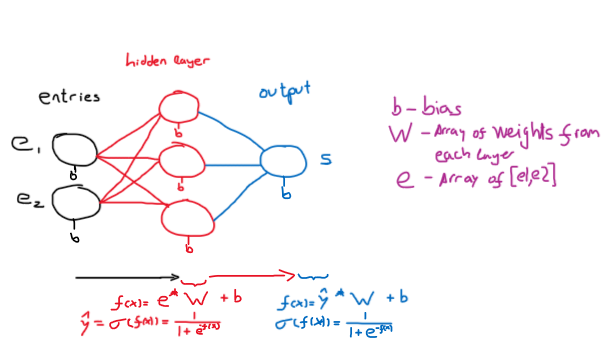 hidden layer
entries
output
e1
e2
b
b
b
b
b
b
s
b - bias
W - Array of weights from
each layer
e - Array of [e1,e2]
f(x) = e * W + b
ŷ = σ(f(x)) = 1 / 1 + e^-f(x)
f(x) = ŷ * W + b
σ(f(x)) = 1 / 1 + e^-f(x)